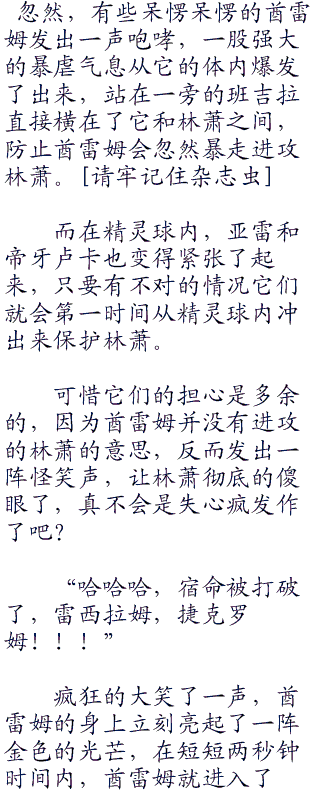 忽然，有些呆愣呆愣的酋雷
姆发出一声咆哮，一股强大
的暴虐气息从它的体内爆发
了出来，站在一旁的班吉拉
直接横在了它和林萧之间，
防止酋雷姆会忽然暴走进攻
林萧。[请牢记住杂志虫]
而在精灵球内，亚雷和
帝牙卢卡也变得紧张了起
来，只要有不对的情况它们
就会第一时间从精灵球内冲
出来保护林萧。
可惜它们的担心是多余
的，因为酋雷姆并没有进攻
的林萧的意思，反而发出一
阵怪笑声，让林萧彻底的傻
眼了，真不会是失心疯发作
了吧？
“哈哈哈，宿命被打破
了，雷西拉姆，捷克罗
姆！！！”
疯狂的大笑了一声，酋
雷姆的身上立刻亮起了一阵
金色的光芒，在短短两秒钟
时间内，酋雷姆就进入了